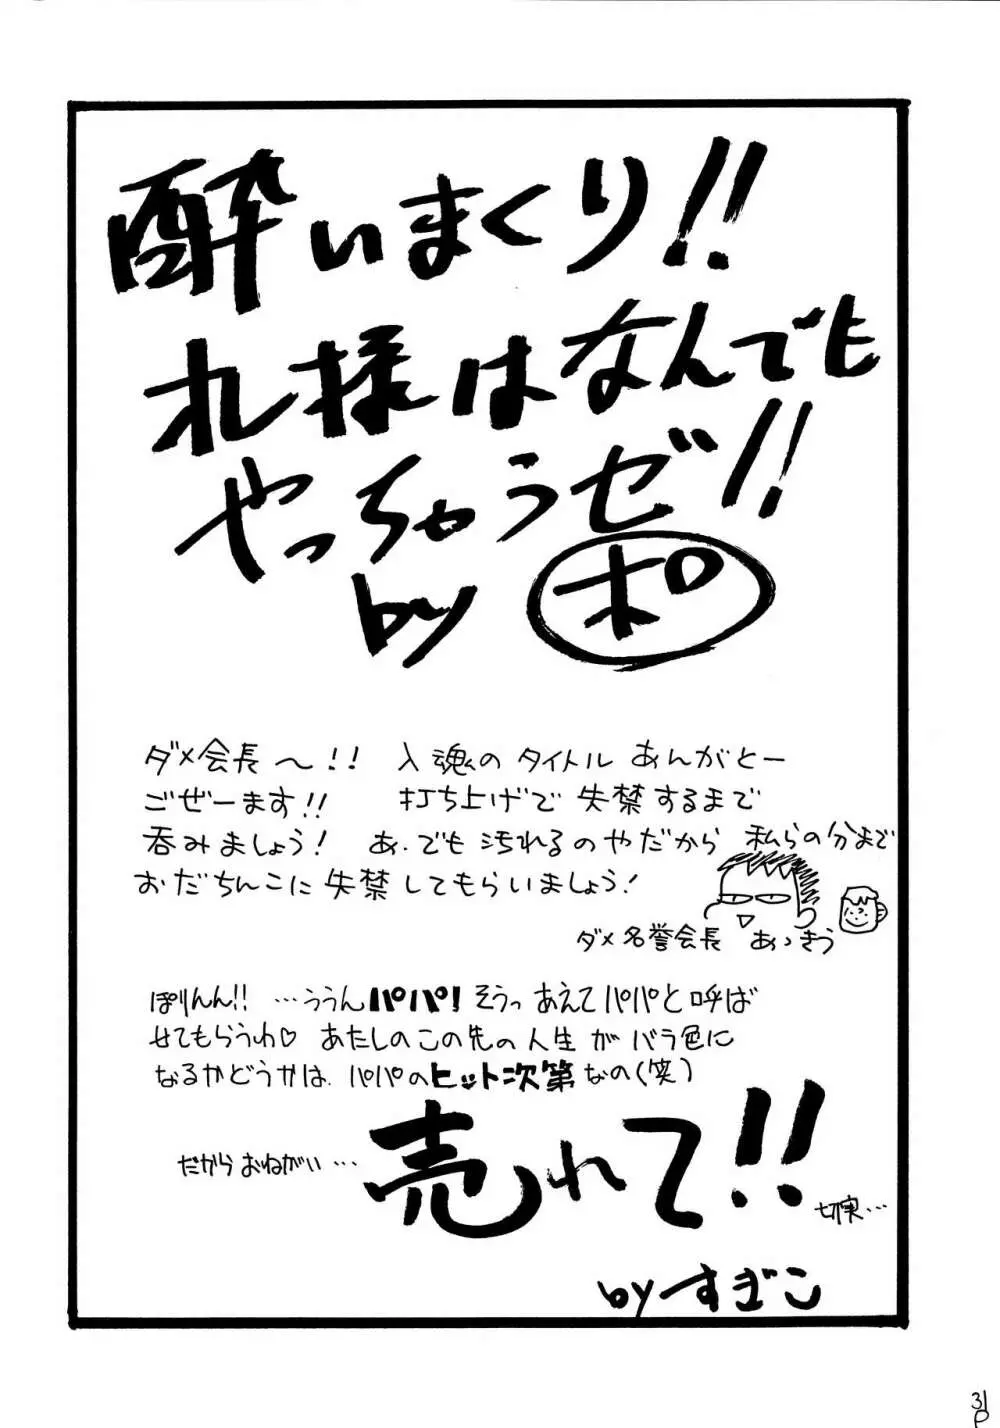 酔いまくり!!
れ様はなんでも
やっちゃうゼ!!
by ポ
ダメ会長～!! 入魂のタイトル あんがとー
ごぜーます!! 打ち上げで 失禁するまで
呑みましょう! あ、でも 汚れるのやだから 私らの分まで
おだちんこに 失禁してもらいましょう!
ダメ名誉会長 あっきう
ぽりんん!! …ううんパパ! そうっ あえてパパと呼ば
せてもらうわ♡ あたしのこの先の人生が バラ色に
なるかどうかは、パパのヒット次第なの(笑)
だから おねがい… 売れて!!
切実…
by すぎこ
31P